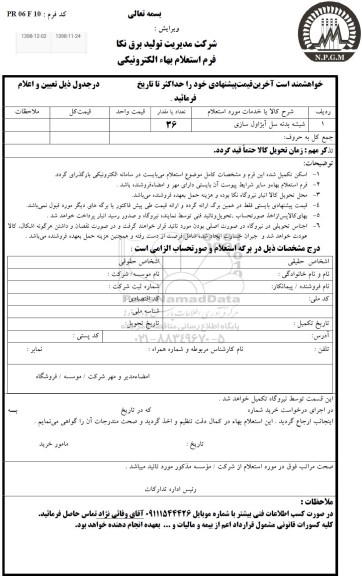 بسمه تعالی
کد فرم : PR 06 F 10
ویرایش :
1398-12-02 1398-11-24
شرکت مدیریت تولید برق نکا
فرم استعلام بهاء الکترونیکی
N.P.G.M
خواهشمند است آخرین قیمت پیشنهادی خود را حداکثر تا تاریخ درجدول ذیل تعیین و اعلام
فرمائید .
ردیف شرح کالا یا خدمات مورد استعلام تعداد یا مقدار قیمت واحد قیمت کل ملاحظات
۱ شیشه بدنه سل آبژاول سازی ۳۶
جمع کل به حروف:
تذکر مهم : زمان تحویل کالا حتماً قید گردد.
توضیحات:
۱- اسکن تکمیل شده این فرم و مشخصات کامل موضوع استعلام می‌بایست در سامانه الکترونیکی بارگذرای گردد.
۲- فرم استعلام بهاءو سایر شرایط پیوست آن بایستی دارای مهر و امضاءفروشنده باشد .
۳- محل تحویل کالا انبار نیروگاه نکا بوده و هزینه حمل بعهده فروشنده می‌باشد.
۴- قیمت پیشنهادی بایستی فقط در همین برگه ارائه گردد و ارائه قیمت طی پیش فاکتور یا برگه های دیگر مورد قبول نمی‌باشد.
۵- بهای کالاپس ازاخذ صورتحساب ،تحویل وتائید فنی توسط نماینده نیروگاه و صدور رسید انبار پرداخت خواهد شد .
۶- اجناس تحویلی در نیروگاه در صورت اصلی بودن مورد تائید قرار خواهند گرفت و در صورت نقصان و داشتن هرگونه اشکال، کالا
عودت خواهد شد و جبران خسارت ایجاد شده شامل فرصت از دست رفته و همچنین هزینه حمل بعهده فروشنده می‌باشد .
درج مشخصات ذیل در برگه استعلام و صورتحساب الزامی است :
اشخاص حقیقی اشخاص حقوقی
نام و نام خانوادگی : نام موسسه/ شرکت :
نام فروشنده / پیمانکار: شماره ثبت شرکت :
کد ملی: کد اقتصادی:
شناسه ملی:
تاریخ تکمیل : تاریخ تحویل:
آدرس: کد پستی :
تلفن : نام کارشناس مربوطه و شماره همراه : نمابر :
امضاءمدیر و مهر شرکت / موسسه / فروشگاه
این قسمت توسط نیروگاه تکمیل خواهد شد .
در اجرای درخواست خرید شماره که در تاریخ بسه
اینجانب ارجاع گردید . این استعلام بهاء در کمال دقت تنظیم و اخذ گردید و صحت مندرجات آن را گواهی می‌نمایم .
تاریخ : مامور خرید
صحت مراتب فوق در مورد استعلام از شرکت / مؤسسه مذکور مورد تائید میباشد .
رئیس اداره تدارکات
ملاحظات :
در صورت کسب اطلاعات فنی بیشتر با شماره موبایل ۰۹۱۱۱۵۴۴۴۲۶ آقای وفائی نژاد تماس حاصل فرمائید.
کلیه کسورات قانونی مشمول قرارداد اعم از بیمه و مالیات و ... بعهده انجام دهنده خواهد بود.
ParsNamadData
۰۲۱-۸۸۳۴۹۶۷۰-۵